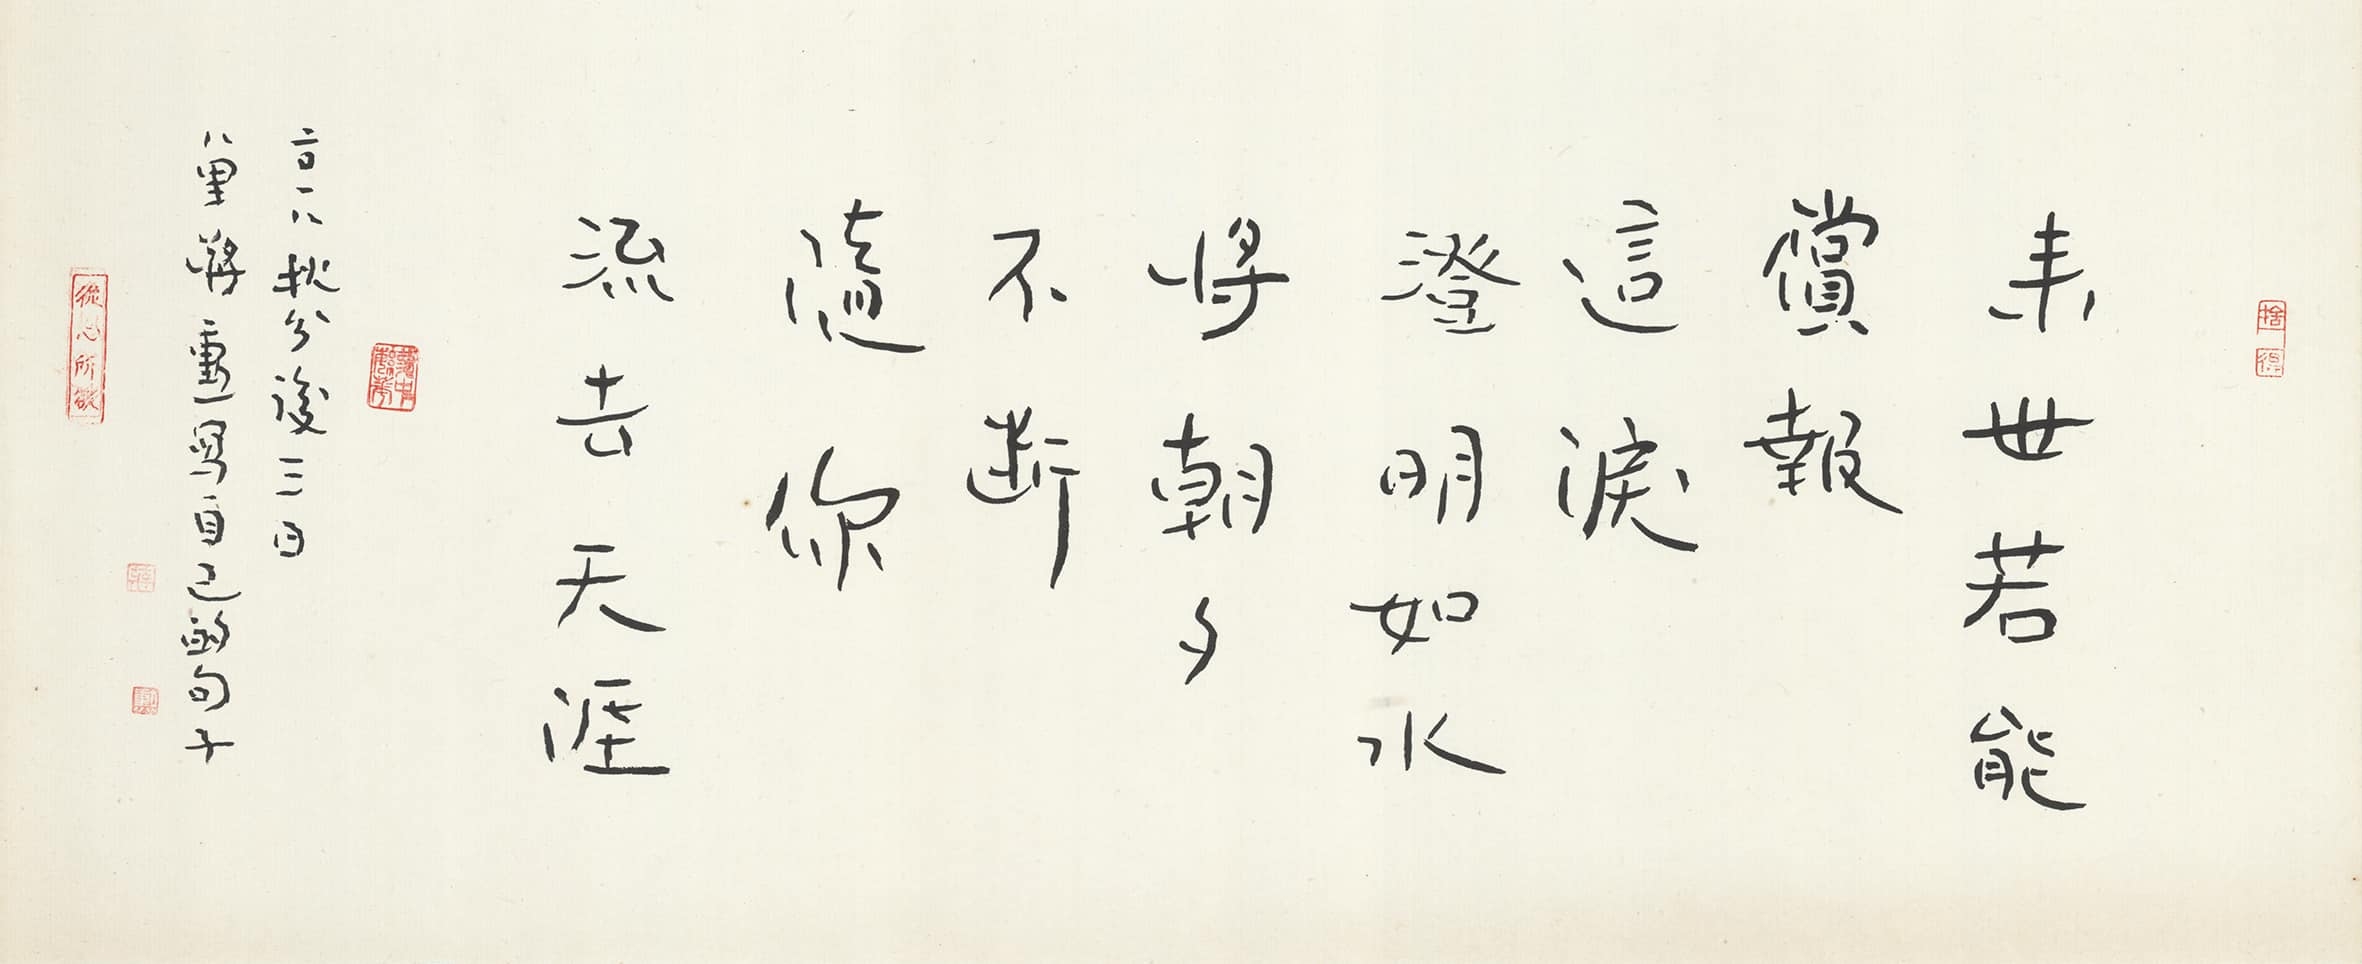 捨得
来世若能
償報
這淚
澄明如水
將朝夕
不斷
隨你
流去天涯
二〇一八秋分後三日
八里蔣勳寫自己的句子
從心所欲